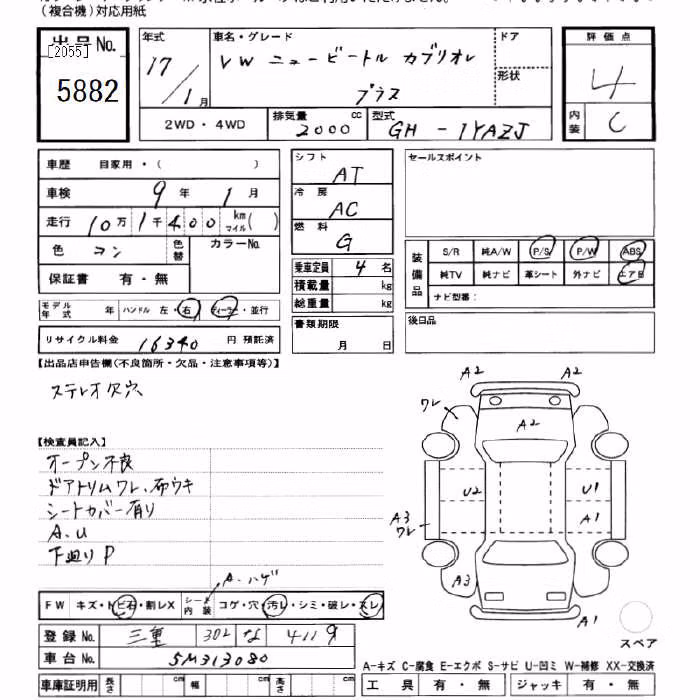 (複合機)対応用紙
出品No.
[2055]
5882
年式
17/1月
車名・グレード
VW ニュービートル カブリオレ
プラス
ドア
形状
2WD・4WD
排気量
2000 cc
型式
GH-1YAZJ
評価点
4
内装
C
車歴 自家用・( )
車検 9年 1月
走行 10万1千400 km マイル( )
色 コン
色替
カラーNo.
保証書 有・無
モデル年式 年
ハンドル 左・右
ディーラー・並行
リサイクル料金 16340 円 預託済
シフト
AT
冷房
AC
燃料
G
乗車定員 4名
積載量 kg
総重量 kg
書類期限
月 日
セールスポイント
装備品
S/R 純A/W P/S P/W ABS
純TV 純ナビ 革シート 外ナビ エアB
ナビ型番:
後日品
【出品店申告欄(不良箇所・欠品・注意事項等)】
ステレオ欠穴
【検査員記入】
オープン不良
ドアトリムワレ、布ウキ
シートカバー有り
A.U
下廻りP
A2 A2
ワレ
A2
U2 U1
A3
ワレ
A1
A3
A1
スペア
A.ハゲ
FW キズ・トビ石・割レX
シート内装 コゲ・穴・汚レ・シミ・破レ・スレ
登録No. 三重 302 な 4119
車台No. 5M313080
車庫証明用 長さ cm 幅 cm 高さ cm
A-キズ C-腐食 E-エクボ S-サビ U-凹ミ W-補修 XX-交換済
工具 有・無 ジャッキ 有・無